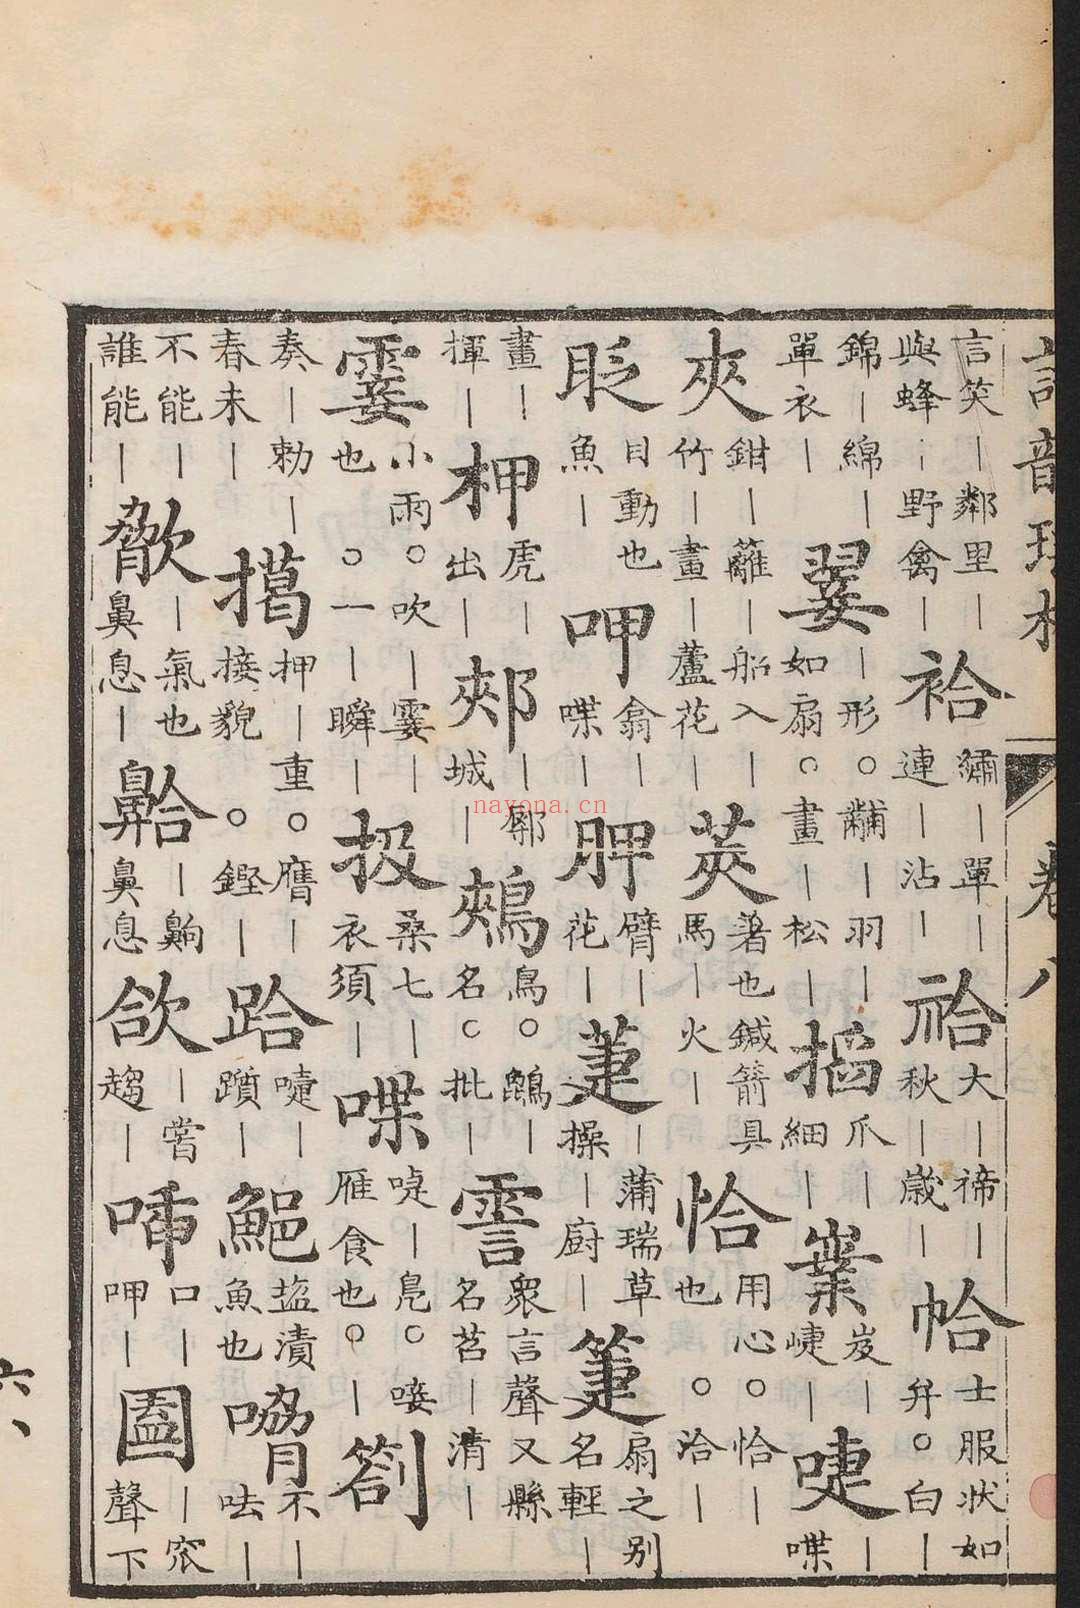 卷八
言笑｜鄰里｜與蜂｜野禽｜袷繡｜單｜連｜沾｜祫大｜禘｜秋｜歲｜帢士服狀如弁。白｜
錦｜綿｜單衣｜翣形。黼｜羽｜如扇。畫｜松｜掐爪｜細｜岌｜啑｜喋
夾鉗｜籬｜船入｜竹｜畫｜蘆花｜莢蓍也鍼箭具馬｜火｜恰用心。恰｜也。洽｜
眨目動也魚｜呷翕｜喋｜胛臂｜花｜萐｜蒲瑞草操｜廚｜箑扇之別名輕｜
畫｜揮｜柙虎｜出｜郟｜鄏城｜鵊鳥。鶝｜名。批｜霅衆言聲又縣名苕｜清｜
霎小雨。吹｜霎｜也。一｜瞬｜扱桑七｜衣須｜喋唼｜鳧。唼｜雁食也。劄
奏｜勅｜春未｜擖押｜重。鷹｜接貌。鏗｜跲嚏｜躓｜䱒盐漬魚也嗋不｜呿｜
不能｜誰能｜｜氣也鼻息｜｜齁鼻息欱｜嘗趨｜喢口｜呷｜圔｜窊聲下
六
nayona.cn